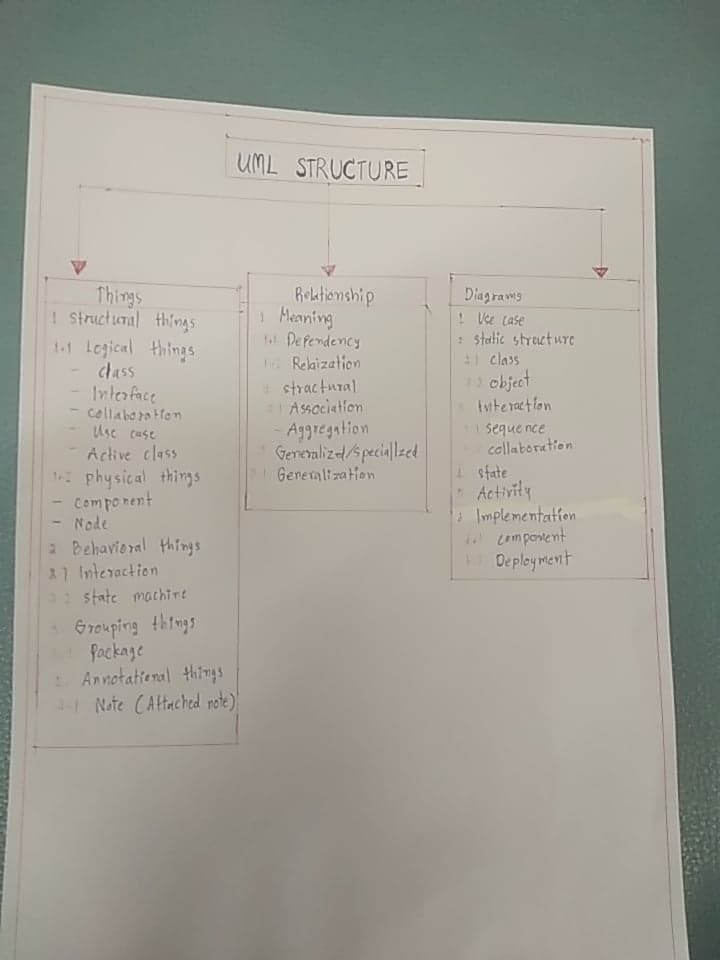 UML STRUCTURE
Things
1 Structural things
1.1 Logical things
- class
- Interface
- collaboration
- Use case
- Active class
1.2 physical things
- component
- Node
2 Behavioral things
2.1 Interaction
2.2 state machine
Grouping things
Package
Annotational things
Note (Attached note)
Relationship
1 Meaning
1.1 Dependency
Relaization
stractural
Association
- Aggregation
Generalized/speciallzed
Generalization
Diagrams
1 Use case
2 static structure
2.1 class
2.2 object
Interaction
sequence
collaboration
state
Activity
Implementation
component
Deployment